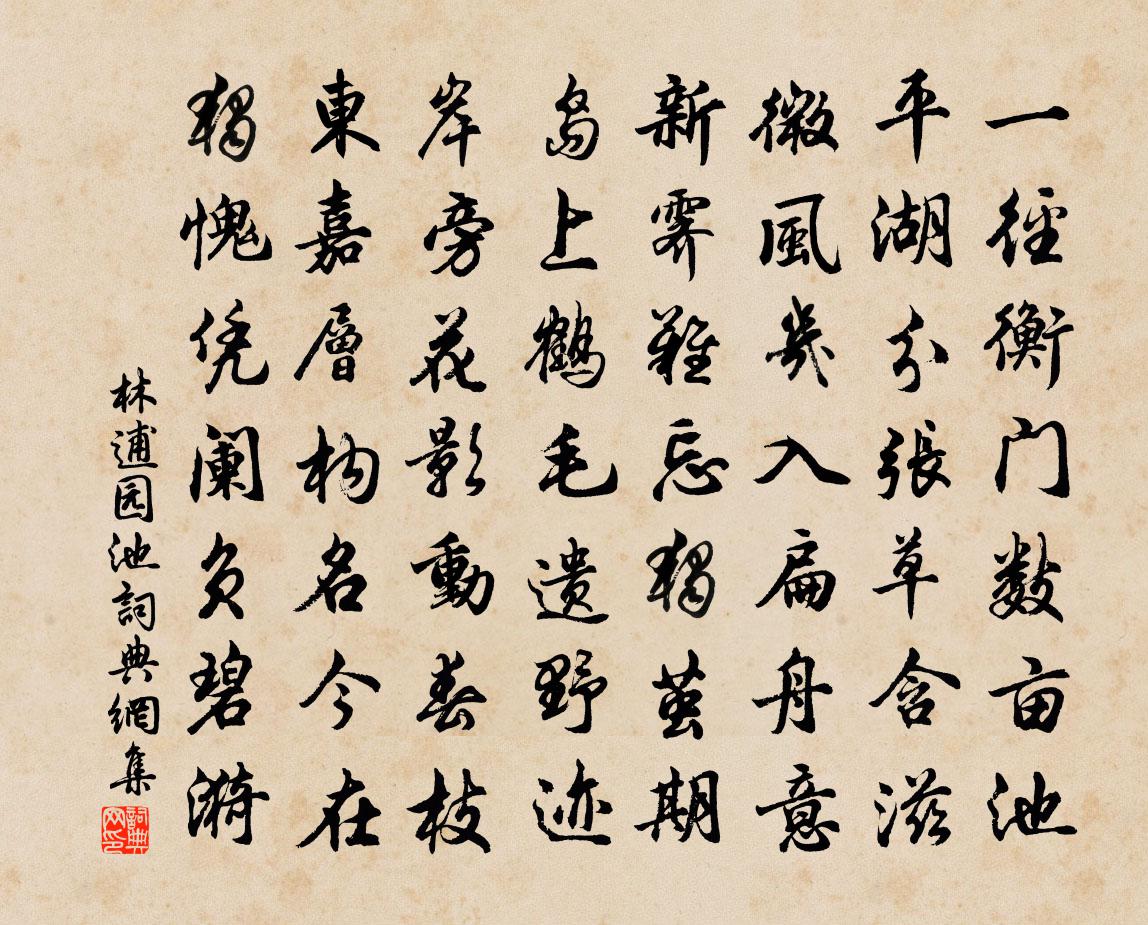 一徑衡门數亩池
平湖分張草含滋
微風幾入扁舟意
新霽難忘獨茧期
島上鶴毛遗野迹
岸旁花影動春枝
東嘉層构名今在
獨愧凭阑负碧漪
林逋园池詞典網集
詞典网印